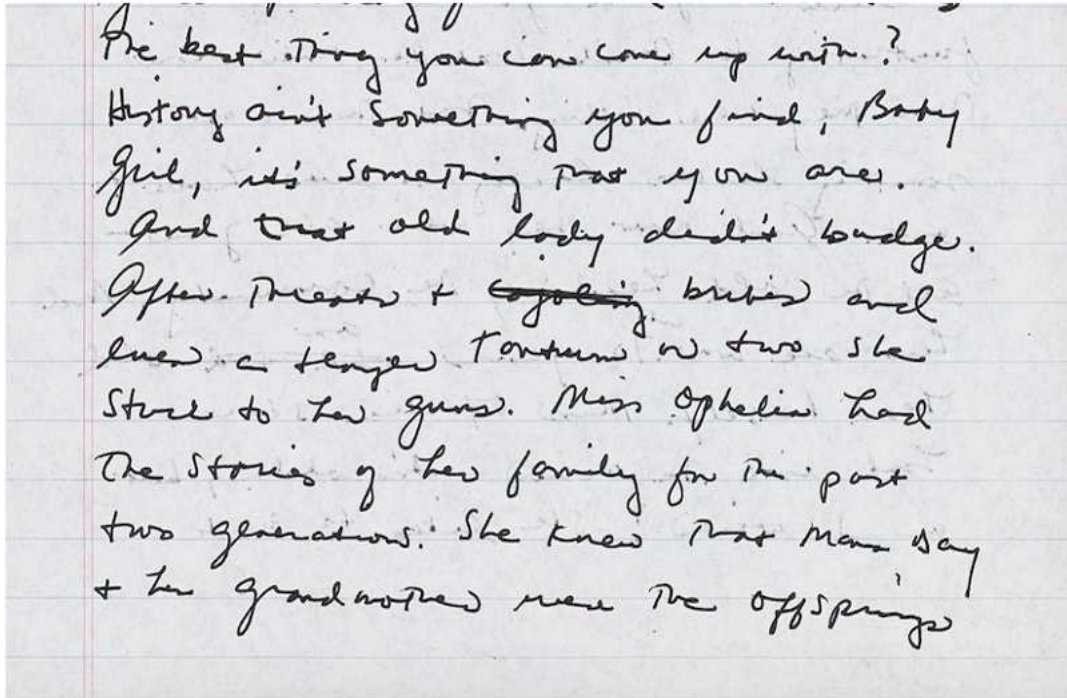 The best thing you can come up with?
History ain't something you find, Baby
Girl, it's something that you are.
And that old lady didn't budge.
After threats + cajoling bribes and
even a temper tantrum or two she
stuck to her guns. Miss Ophelia had
the stories of her family for the past
two generations. She knew that Mama Day
+ her grandmother were the offsprings